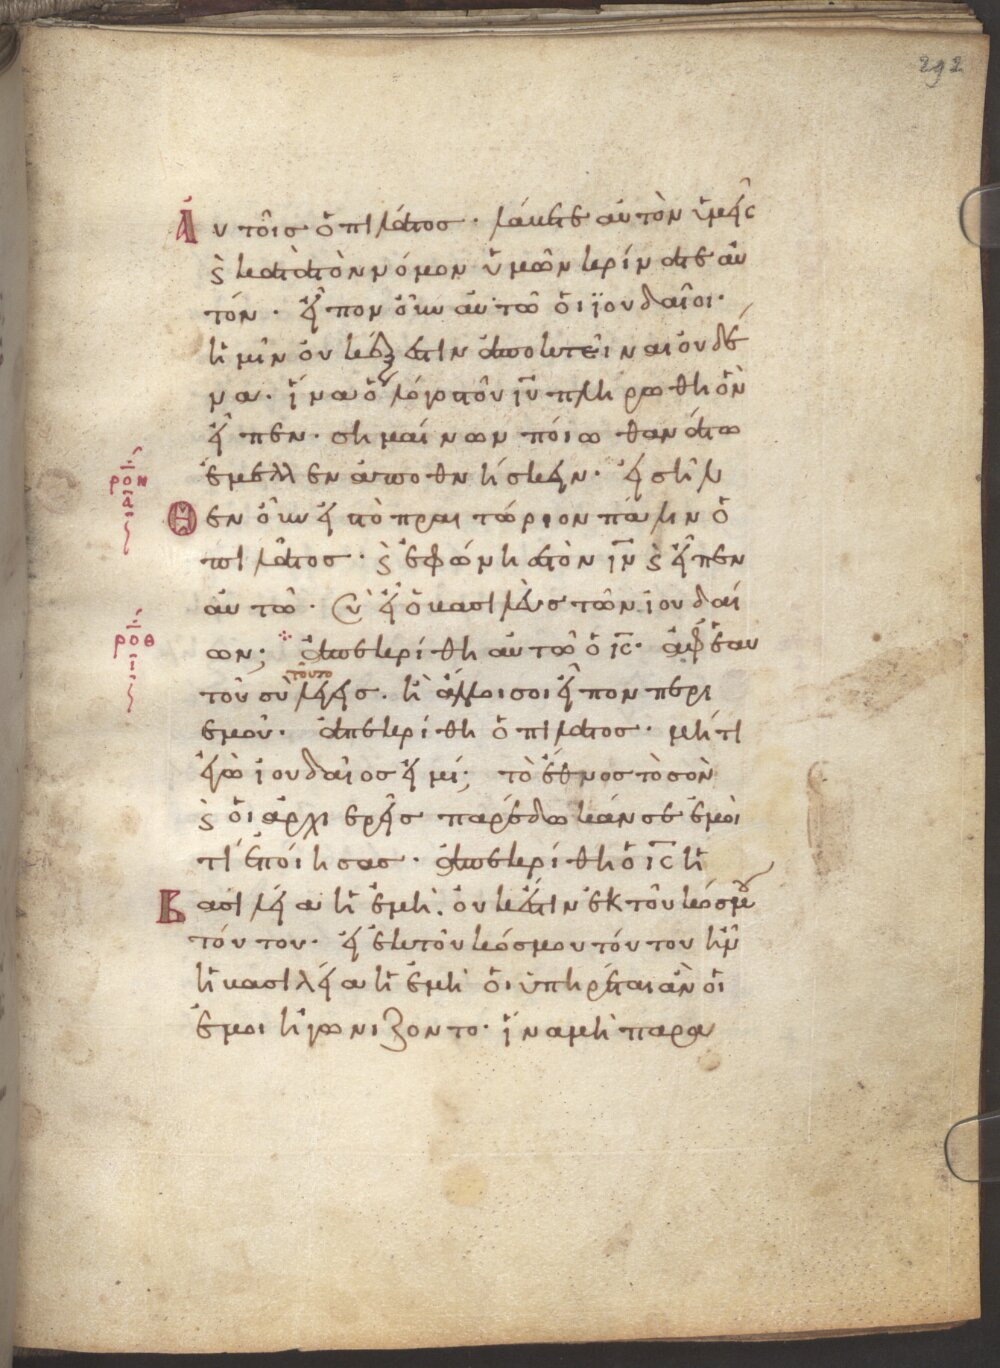 292
Αυτοῖς ὁ πιλάτος · λάβετε αὐτὸν ὑμεῖς
ϗ κατὰ τὸν νόμον ὑμῶν κρίνατε αὐ
τόν · εἶπον οὖν αὐτῶ ὁι ϊουδαῖοι ·
ἡμῖν οὐκ ἔξεστιν ἀποκτεῖναι ὀυδέ
να · ἵνα ὁ λόγος τοῦ ἰῦ πληρωθῆ ὃν
εἶπεν · σημαίνων ποίω θανάτω
ἔμελλεν ἀποθνήσκειν · εἰσῆλ
Θεν οὖν εἰς τὸ πραιτώριον πάλιν ὁ
πιλάτος · ϗ ἐφώνησε τὸν ἰν ϗ εἶπεν
αὐτῶ · Σὺ εἶ ὁ βασιλεὺς τῶν ἰουδαί
ων; ἀπεκρίθη αὐτῶ ὁ ις · ἀφ ἑαυ
τοῦ σὺ τοῦτο λέγεις · ἢ ἄλλοι σοι εἶπον περι
ἐμοῦ · ἀπεκρίθη ὁ πιλάτος · μήτι
ἐγὼ ἰουδαῖος εἰμί; τὸ ἔθνος τὸ σὸν
ϗ ὁι ἀρχιερεῖς παρέδωκάν σε ἐμοὶ
τί ἐποίησας · ἀπεκρίθη ὁ ις ἡ
Βασιλεία ἡ ἐμὴ · ὀυκ ἔστιν ἐκ τοῦ κόσμου
τούτου · εἰ ἐκ τοῦ κόσμου τούτου ἦν
ἡ βασιλεία ἡ ἐμὴ ὁι ὑπηρέται ἂν ὁι
ἐμοι ἠγωνίζοντο · ἵνα μὴ παρα
ροη
α
ροθ
ι